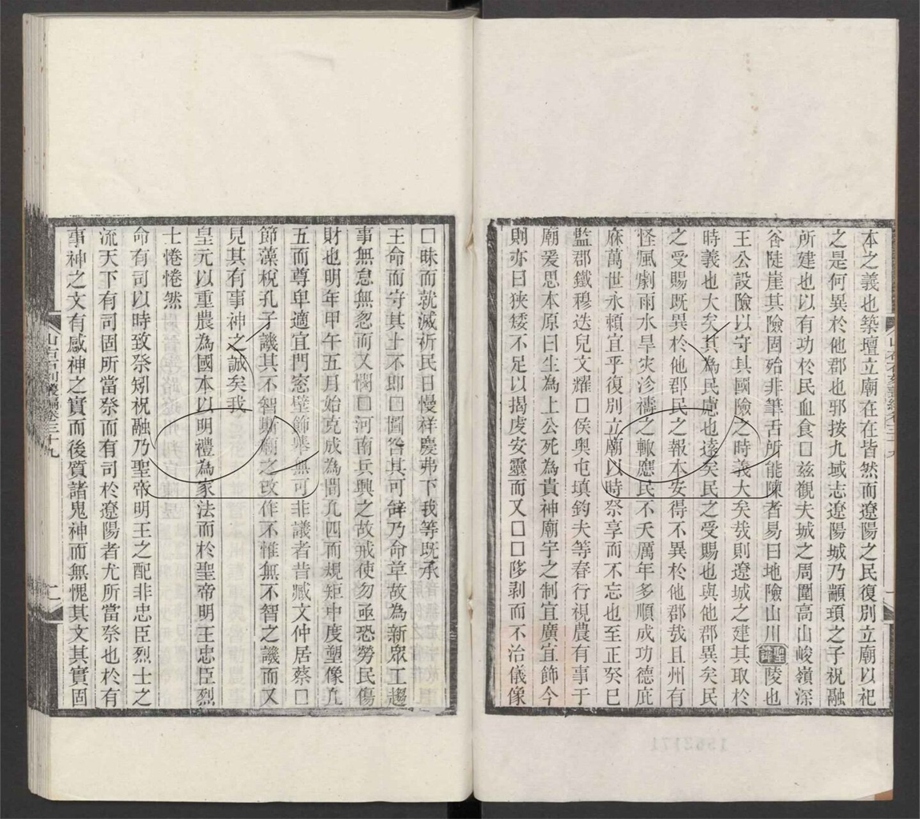 本之義也築壇立廟在在皆然而遼陽之民復別立廟以祀
之是何異於他郡也邪按九域志遼陽城乃顓頊之子祝融
所建也以有功於民血食□茲觀夫城之周圍高山峻嶺深
谷陡崖其險固殆非筆舌所能陳者易曰地險山川丘陵也
王公設險以守其國險之時義大矣哉則遼城之建其取於
時義也大矣其為民慮也遠矣民之受賜也與他郡異矣民
之受賜既異於他郡民之報本安得不異於他郡哉且州有
怪風劇雨水旱灾沴禱之輙應民不夭厲年多順成功德庇
庥萬世永賴宜乎復別立廟以時祭享而不忘也至正癸巳
監郡鐵穆迭兒文耀□侯輿屯塡鈞夫等春行視農有事于
廟爰思本原曰生為上公死為貴神廟宇之制宜廣宜飾今
則亦曰狹矮不足以揭虔安靈而又□□陊剥而不治儀像
□昧而就滅祈民日慢祥慶弗下我等既承
王命而守其土不即□圖咎其可辭乃命章故為新眾工趨
事無怠無忽而又憫□河南兵興之故戒使勿亟恐勞民傷
財也明年甲午五月始克成為間凡四而規矩中度塑像凡
五而尊卑適宜門窓壁節舉無可非議者昔臧文仲居蔡□
節藻梲孔子譏其不智斯廟之改作不惟無不智之譏而又
見其有事神之誠矣我
皇元以重農為國本以明禮為家法而於聖帝明王忠臣烈
士惓惓然
命有司以時致祭矧祝融乃聖帝明王之配非忠臣烈士之
流天下有司固所當祭而有司於遼陽者尤所當祭也於有
事神之文有感神之實而後質諸鬼神而無愧其文其實固